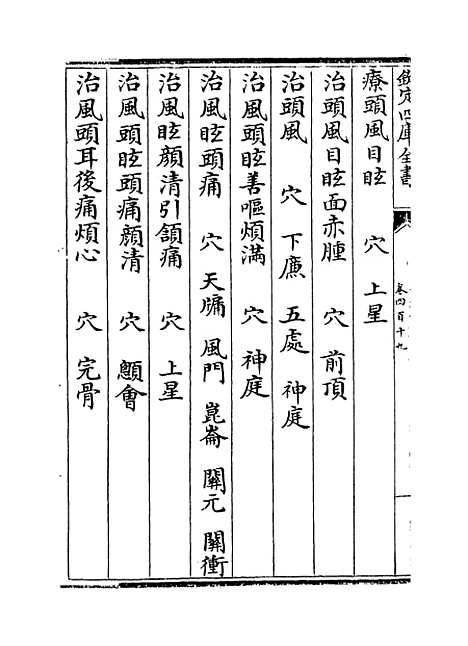 欽定四庫全書
卷四百十九
療頭風目眩 穴 上星
治頭風目眩面赤腫 穴 前頂
治頭風 穴 下廉 五處 神庭
治風頭眩善嘔煩滿 穴 神庭
治風眩頭痛 穴 天牖 風門 崑崙 關元 關衝
治風眩顔清引頷痛 穴 上星
治風頭眩頭痛顔清 穴 顖會
治風頭耳後痛煩心 穴 完骨